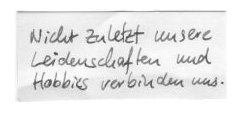 Nicht zuletzt unsere
Leidenschaften und
Hobbies verbinden uns.